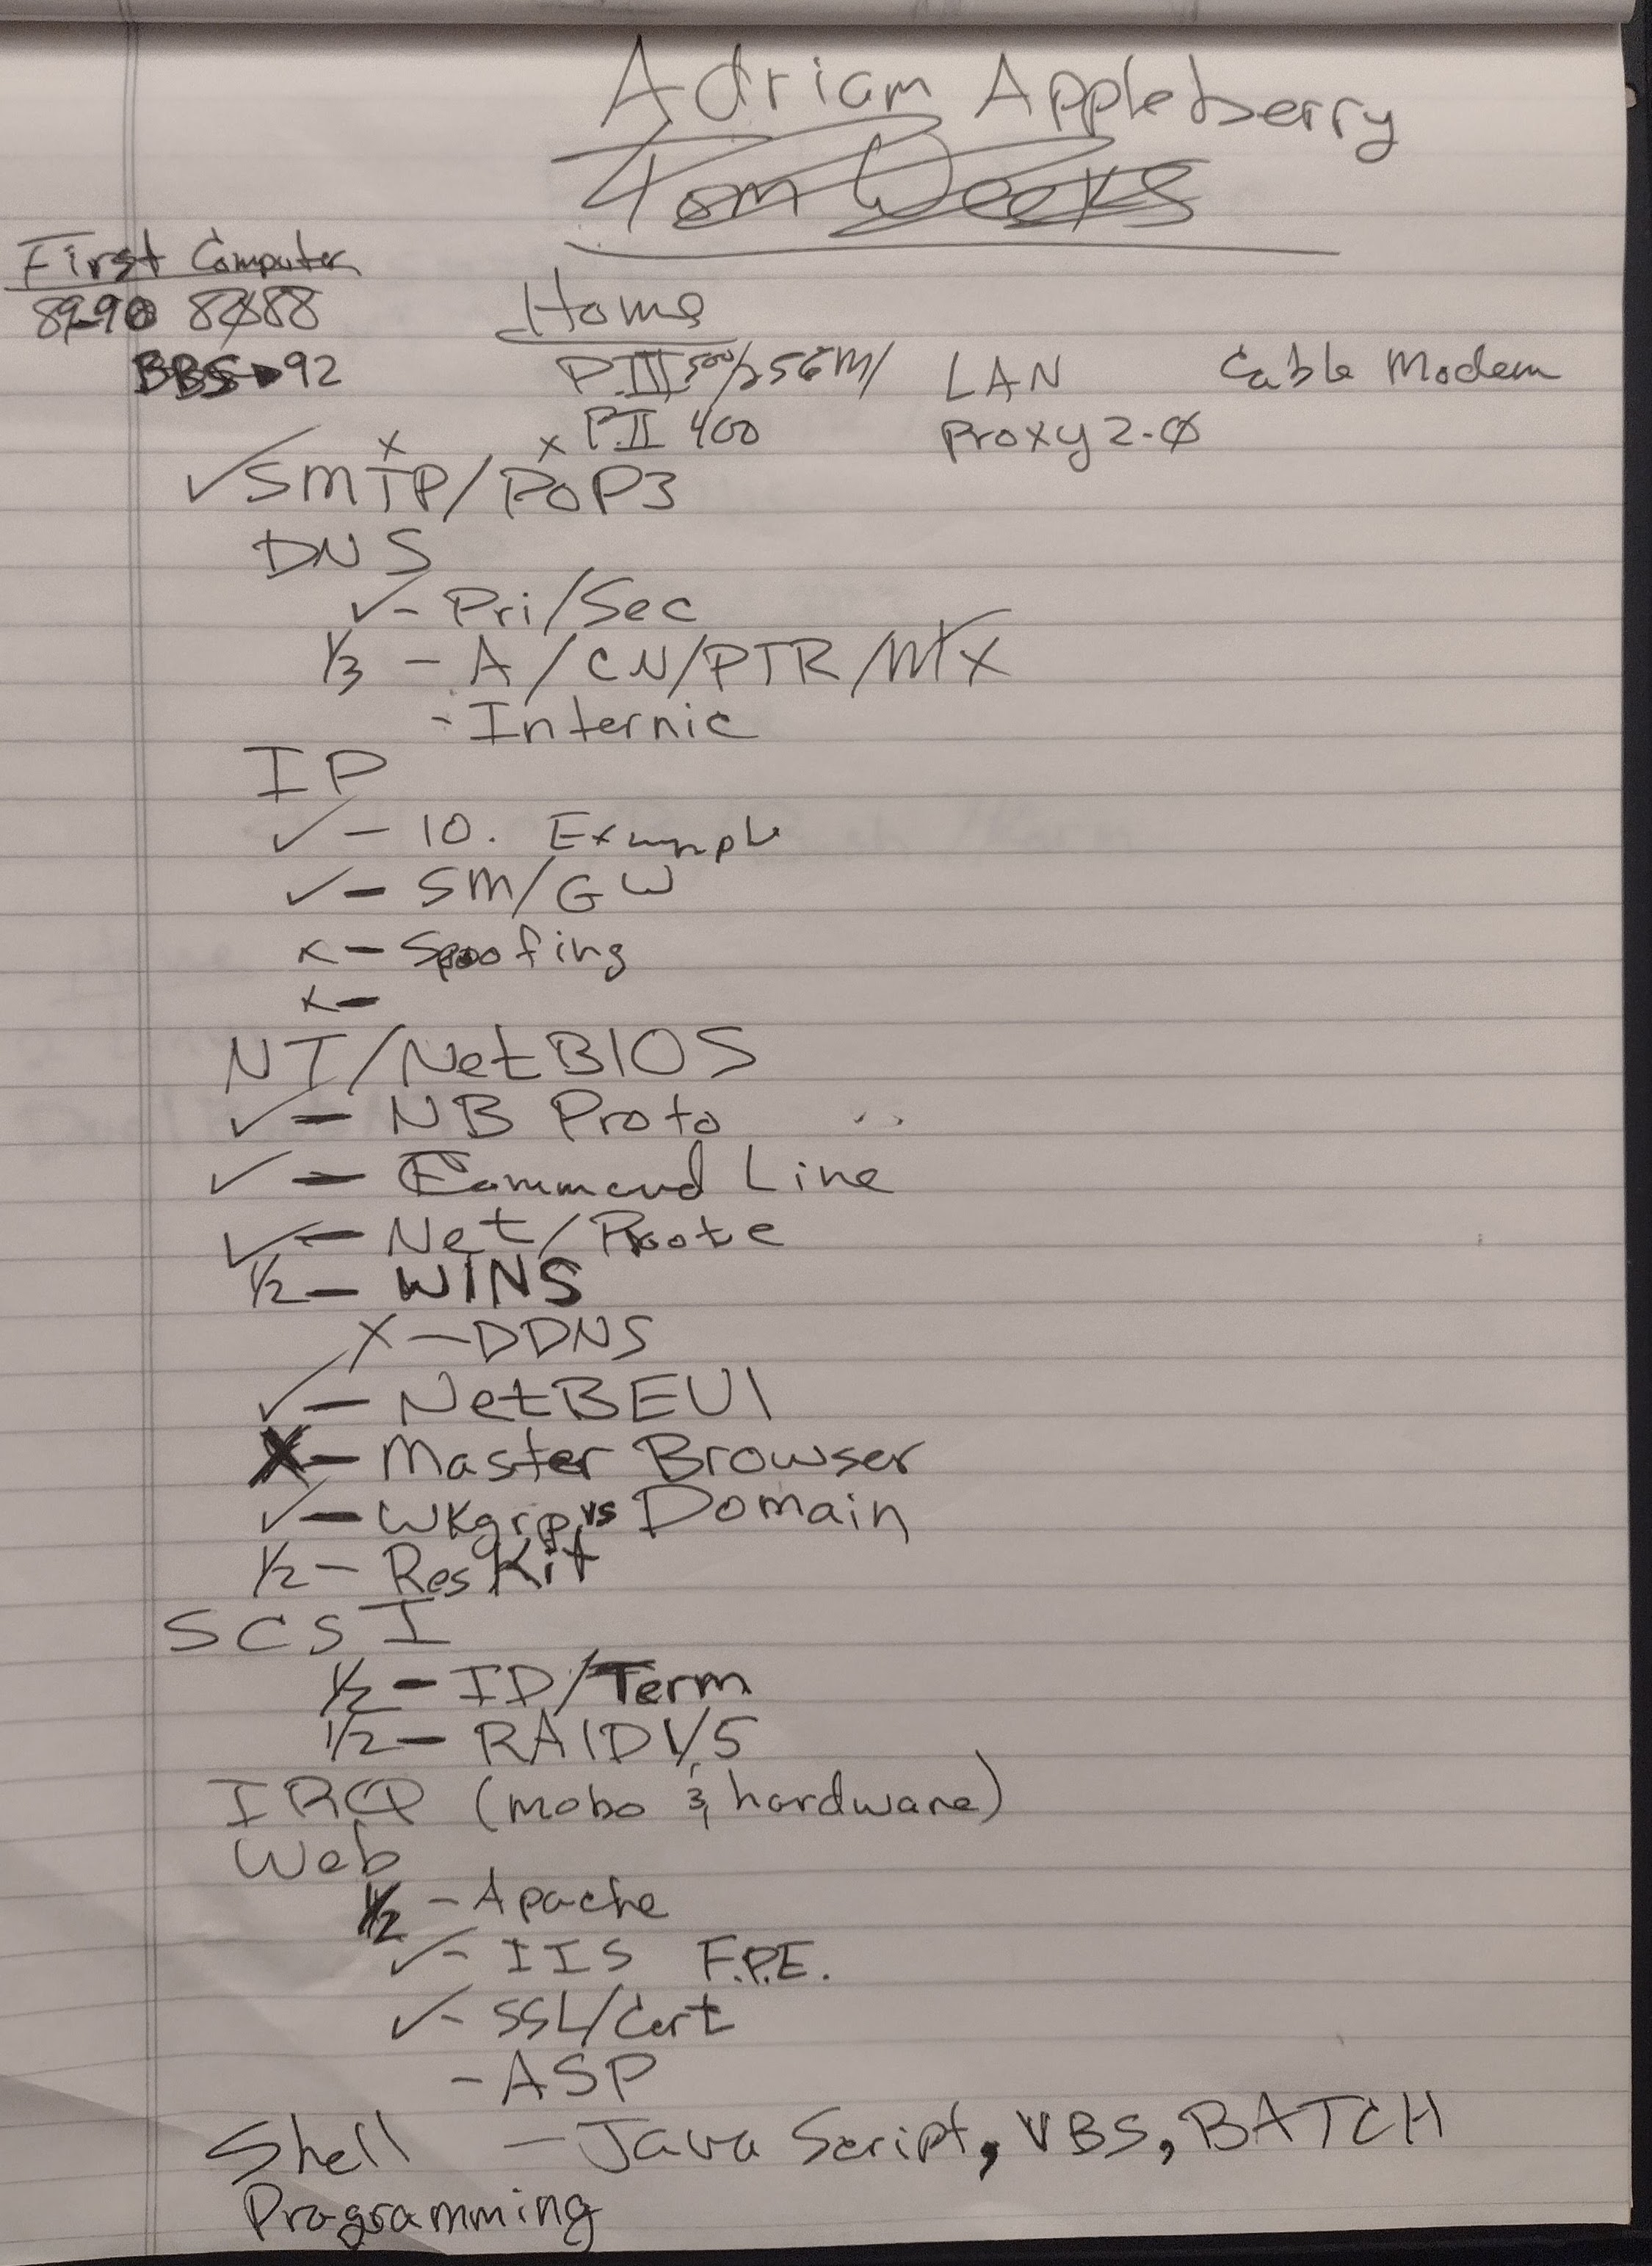 Adrian Appleberry
Tom Weeks
First Computer
89-90 8088
BBS → 92
Home
PIII 500/256M/ LAN Cable Modem
PII 400 Proxy 2.0
x x
✓ SMTP/POP3
DNS
✓ - Pri/Sec
1/3 - A/CN/PTR/MX
- Internic
IP
✓ - 10. Example
✓ - SM/GW
x - Spoofing
x -
NT/NetBIOS
✓ - NB Proto
✓ - Command Line
✓ - Net/Route
1/2 - WINS
X - DDNS
✓ - NetBEUI
X - Master Browser
✓ - Wkgrp vs Domain
1/2 - Res Kit
SCSI
1/2 - ID/Term
1/2 - RAID 1/5
IRQ (mobo & hardware)
Web
1/2 - Apache
✓ - IIS F.P.E.
✓ - SSL/Cert
- ASP
Shell - Java Script, VBS, BATCH
Programming